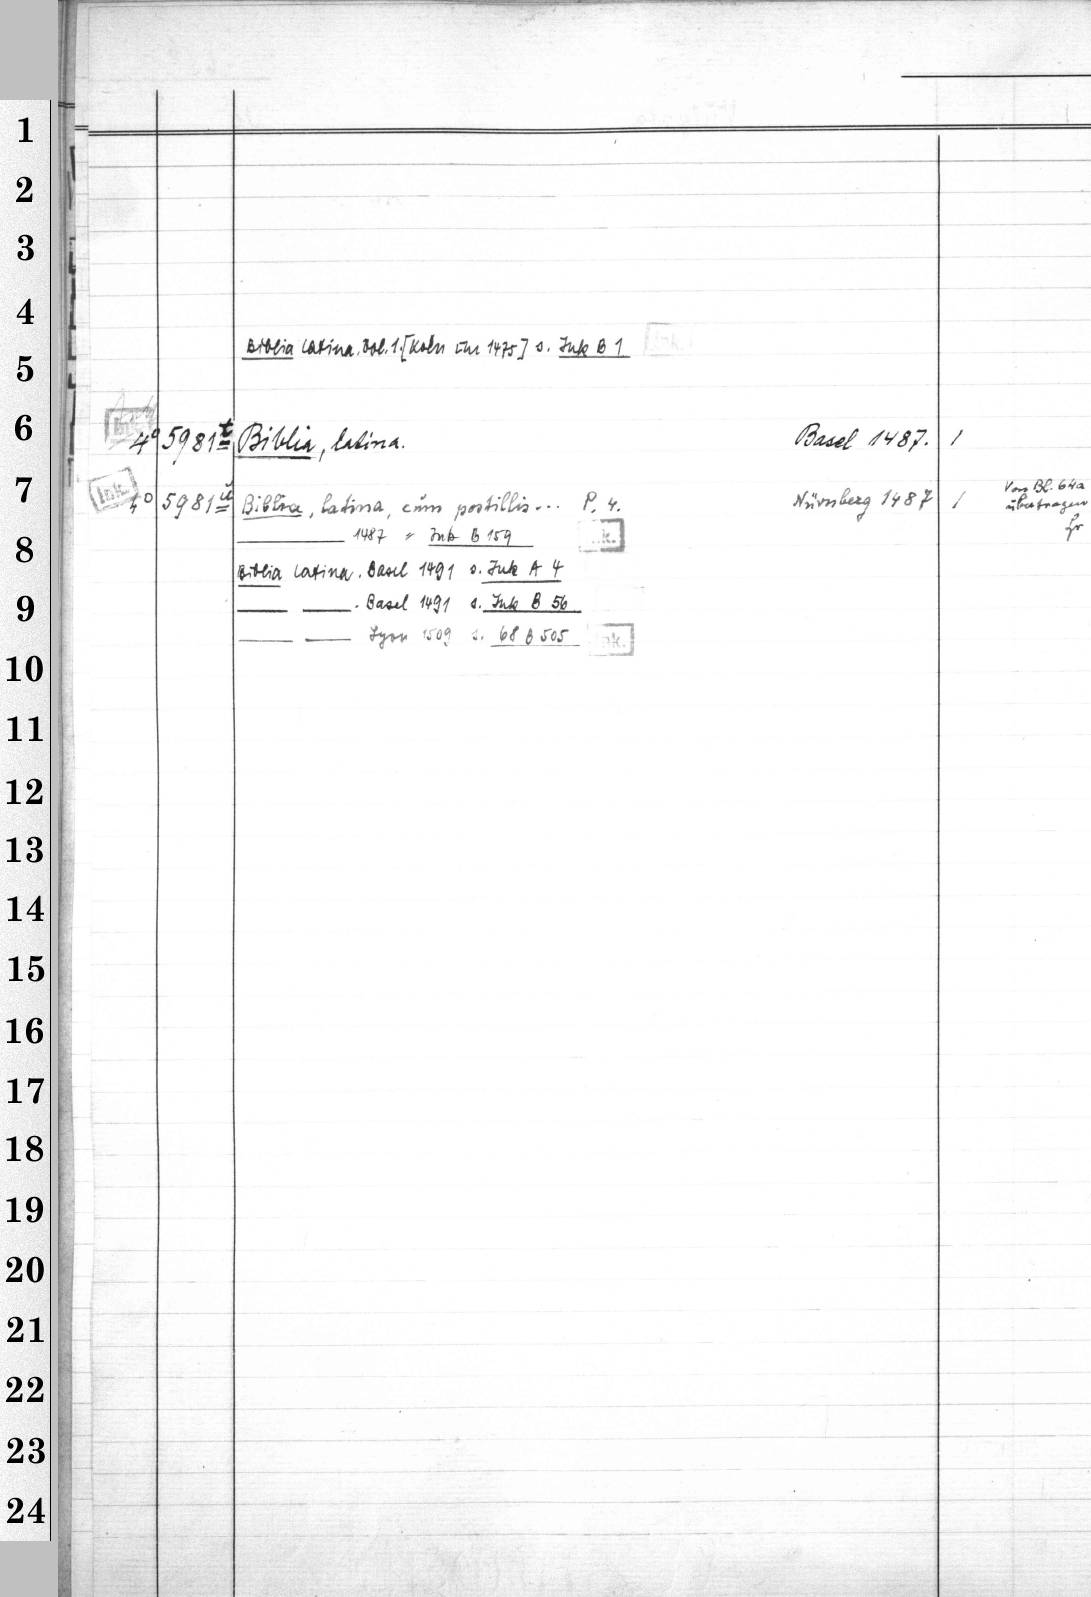 1
2
3
4
Biblia Latina. Vol. 1. [Köln um 1475] s. Ink B 1 Ink.
5
6
Ink. 4° 5981 t Biblia, latina. Basel 1487. 1
7
Ink. 4° 5981 u Biblia, latina, cum postillis... P. 4. Nürnberg 1487 1 Von Bl. 64a
übertragen
1487 = Ink B 159 Ink.
8
Biblia Latina. Basel 1491 s. Ink A 4
9
. Basel 1491 s. Ink B 56
Lyon 1509 s. 68 B 505 Ink.
10
11
12
13
14
15
16
17
18
19
20
21
22
23
24